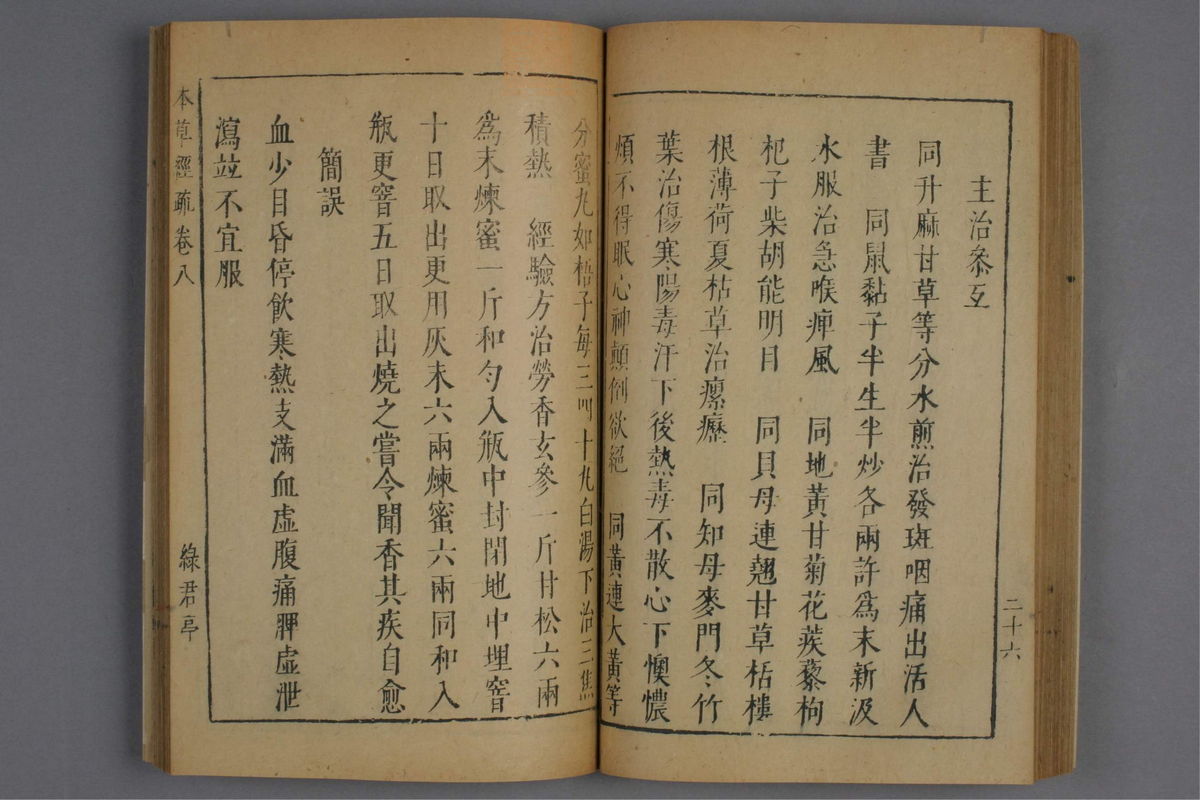 主治叅互
同升麻甘草等分水煎治發斑咽痛出活人
書　同鼠黏子半生半炒各兩許爲末新汲
水服治急喉痺風　同地黃甘菊花蒺藜枸
杞子柴胡能明目　同貝母連翹甘草栝樓
根薄荷夏枯草治瘰癧　同知母麥門冬竹
葉治傷寒陽毒汗下後熱毒不散心下懊憹
煩不得眠心神顛倒欲絕　同黃連大黃等
二十六
分蜜丸如梧子每三四十丸白湯下治三焦
積熱　經驗方治勞香玄參一斤甘松六兩
爲末煉蜜一斤和勻入瓶中封閉地中埋窨
十日取出更用灰末六兩煉蜜六兩同和入
瓶更窨五日取出燒之嘗令聞香其疾自愈
簡誤
血少目昏停飲寒熱支滿血虛腹痛脾虛泄
瀉竝不宜服
本草經疏卷八
綠君亭